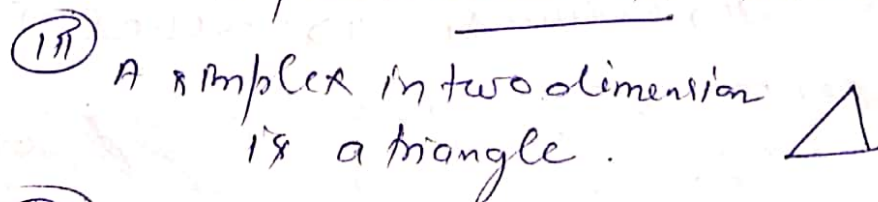 (iii) A simplex in two dimension
is a triangle.